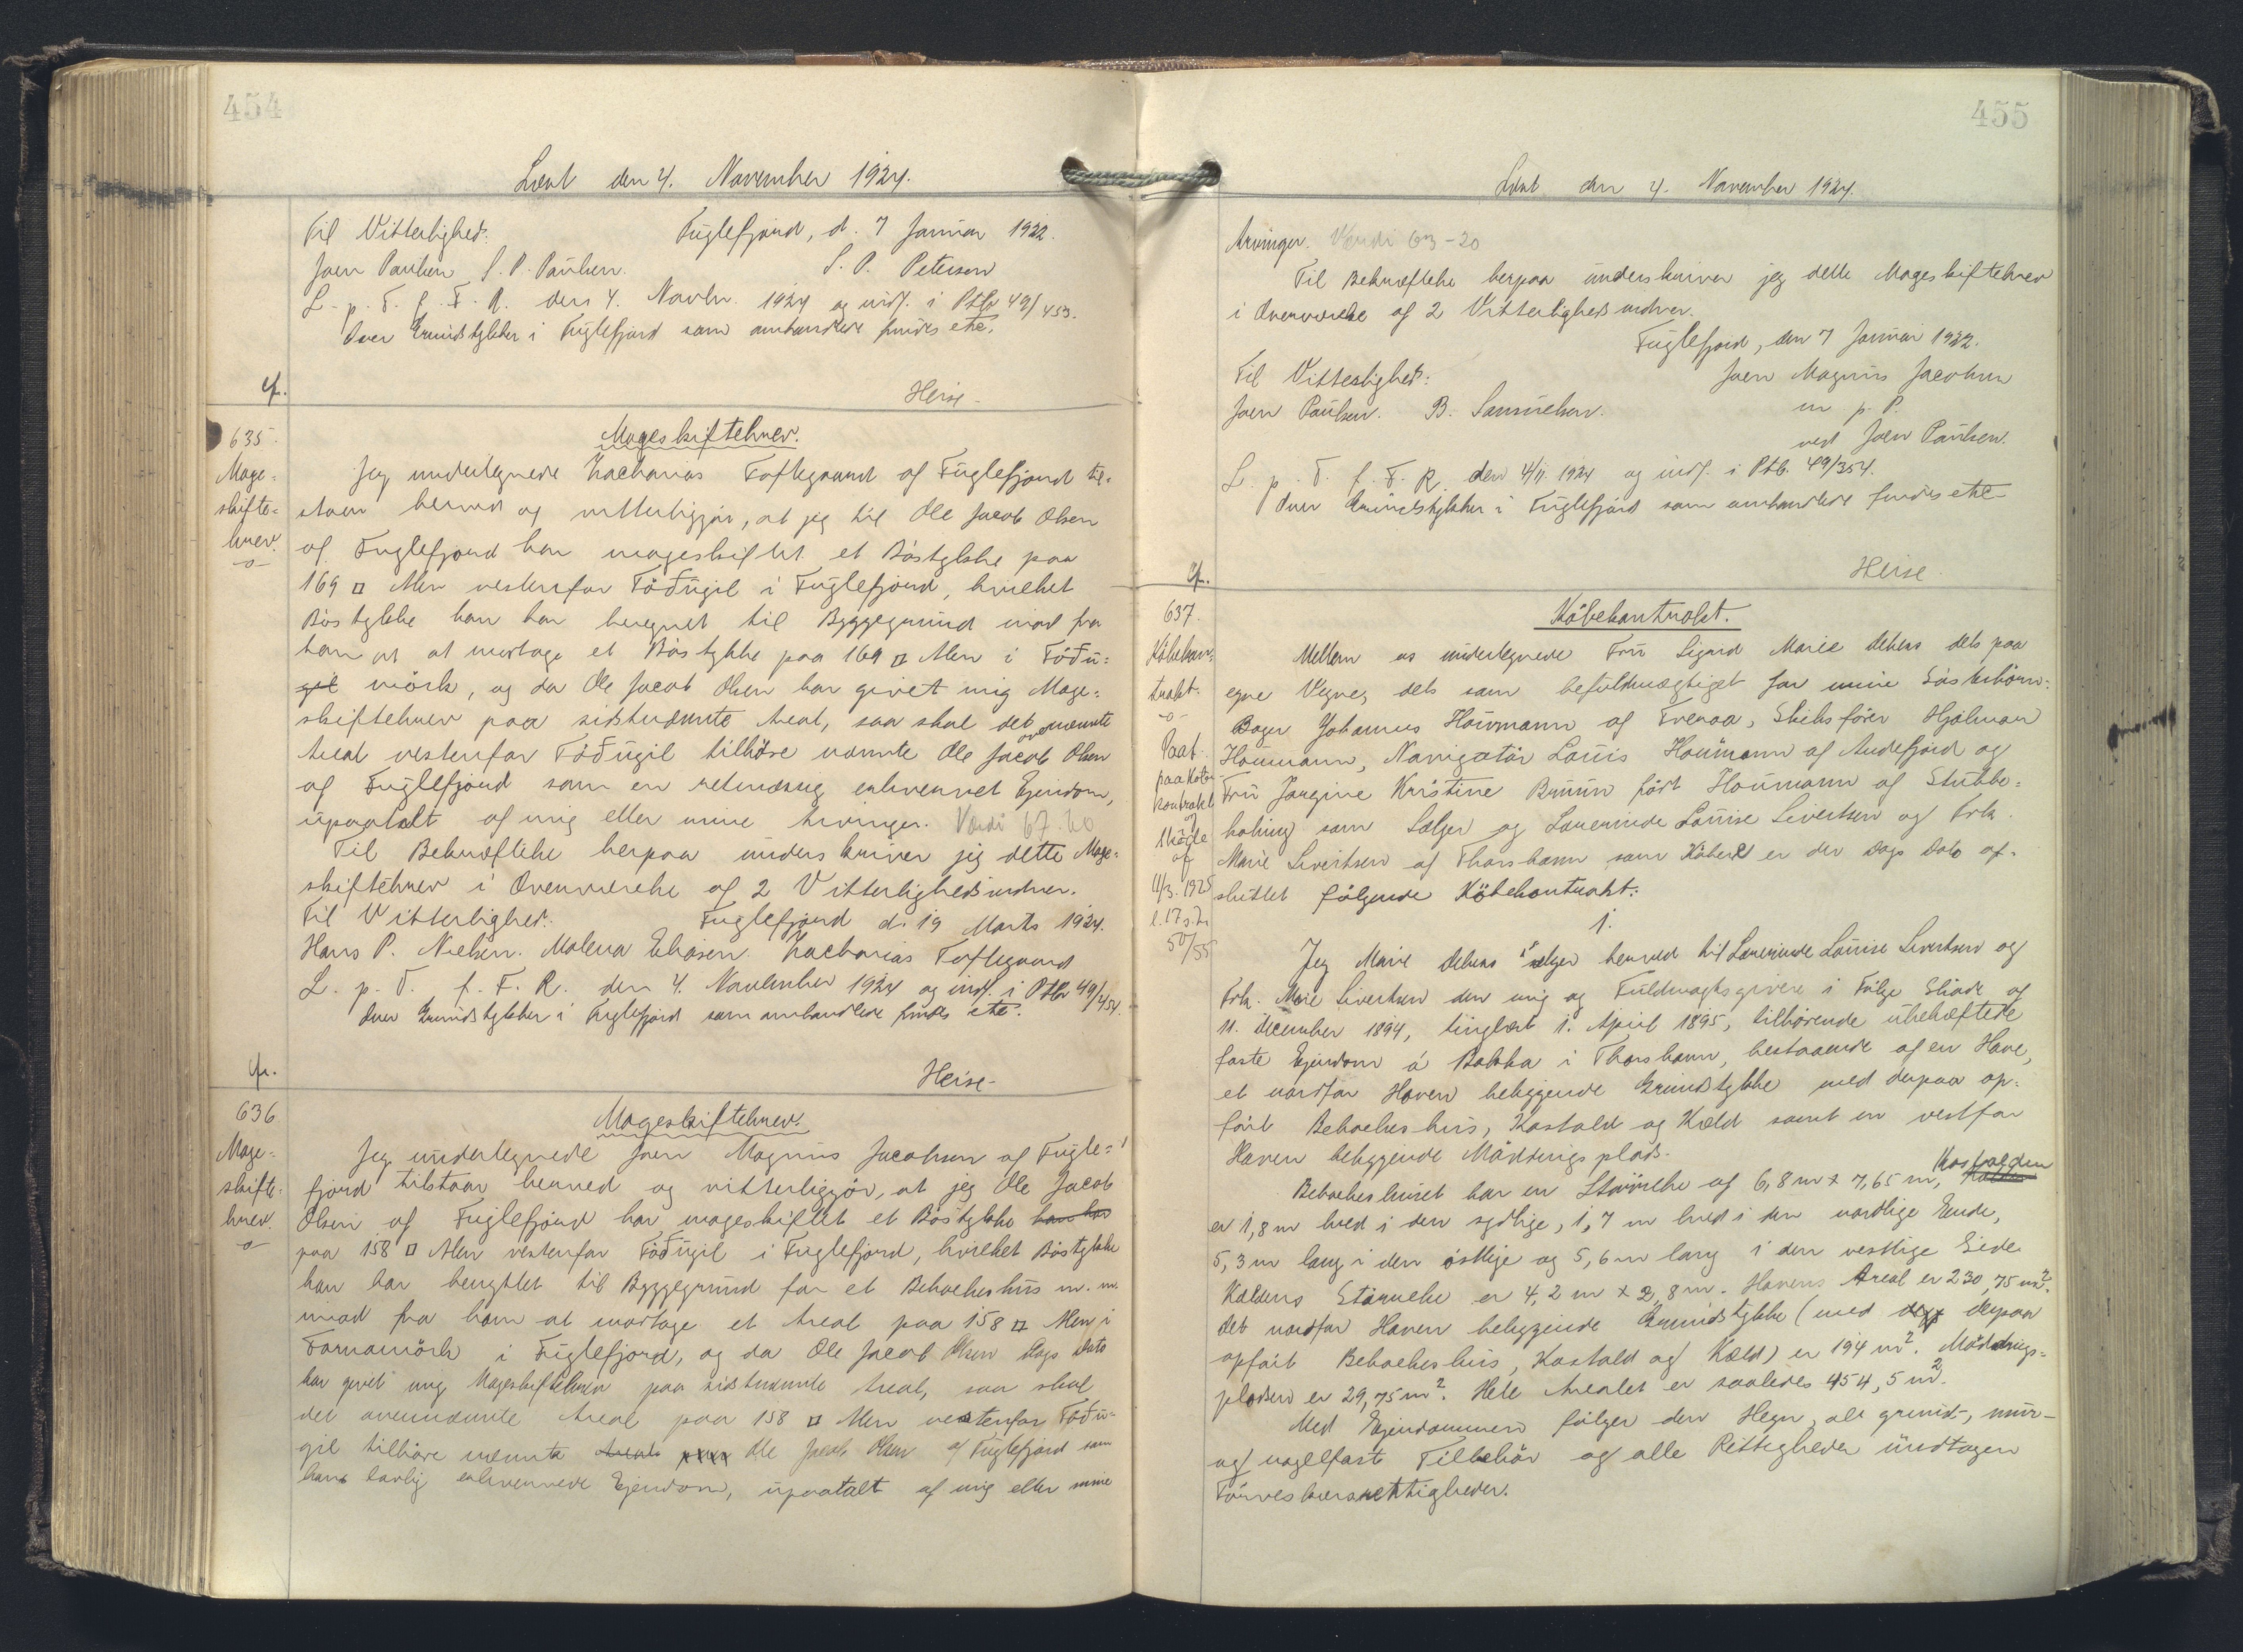 454
Læst den 4. November 1924.
Til Vitterlighed: Fuglefjord, d. 7 Januar 1922.
Joen Paulsen J. P. Paulsen. S. P. Petersen
L. p. T. f. F. R. den 4. Novbr. 1924 og indf. i Ptb 49/453.
Over Grundstykker i Fuglefjord som omhandlede findes etc.
cfr.
Heise
635.
Mage=
skifte=
brev.
Mageskiftebrev.
Jeg undertegnede Zacharias Toftegaard af Fuglefjord til-
staar herved og vitterliggör, at jeg til Ole Jacob Olsen
af Fuglefjord har mageskiftet et Böstykke paa
169 □ Alen vestenfor Töðugil i Fuglefjord, hvilket
Böstykke han har beregnet til Byggegrund imod fra
ham at modtage et Böstykke paa 169 □ Alen i Töðu=
gil mörk, og da Ole Jacob Olsen har givet mig Mage=
skiftebrev paa sidstnævnte Areal, saa skal det ovennævnte
Areal vestenfor Töðugil tilhöre nævnte Ole Jacob Olsen
af Fuglefjord som en retmæssig erhvervet Ejendom,
upaatalt af mig eller mine Arvinger. Værdi 67.60
Til Bekræftelse herpaa underskriver jeg dette Mage=
skiftebrev i Overværelse af 2 Vitterlighedsvidner.
Til Vitterlighed: Fuglefjord d. 19 Marts 1924.
Hans P. Nielsen. Malena Eliasen. Zacharias Toftegaard
L. p. T. f. F. R. den 4. November 1924 og indf. i Ptb 49/454.
Over Grundstykker i Fuglefjord som omhandlede findes etc.
cfr.
Heise
636
Mage=
skifte=
brev.
Mageskiftebrev.
Jeg undertegnede Joen Magnus Jacobsen af Fugle=
fjord tilstaar herved og vitterliggör, at jeg Ole Jacob
Olsen af Fuglefjord har mageskiftet et Böstykke han har
paa 158 □ Alen vestenfor Töðugil i Fuglefjord, hvilket Böstykke
han har benyttet til Byggegrund for et Beboelseshus m. m.
imod fra ham at modtage et Areal paa 158 □ Alen i
Fornamörk i Fuglefjord, og da Ole Jacob Olsen Dags Dato
har givet mig Mageskiftebrev paa sidstnævnte Areal, saa skal
det ovennævnte Areal paa 158 □ Alen vestenfor Töðu=
gil tilhöre nævnte Ole Jacob Olsen af Fuglefjord som
hans lovlig erhvervede Ejendom, upaatalt af mig eller mine
455
Læst den 4. November 1924.
Arvinger. Værdi 63-20
Til Bekræftelse herpaa underskriver jeg dette Mageskiftebrev
i Overværelse af 2 Vitterlighedsvidner.
Fuglefjord, den 7 Januar 1922.
Til Vitterlighed: Joen Magnus Jacobsen
Joen Paulsen. B. Samuelsen. m. p. P.
ved Joen Paulsen.
L. p. T. f. F. R. den 4/11 1924 og indf. i Ptb. 49/354.
Over Grundstykker i Fuglefjord som omhandlede findes etc
cfr.
Heise
637.
Köbekon=
trakt.
Paat.
paa Köbe
kontrakt
af
Skøde
af
11/3. 1925
l. 17 s. D.
50/55
Köbekontrakt.
Mellem os undertegnede Fru Sigrid Marie Debess dels paa
egne Vegne, dels som befuldmægtiget for mine Söskendebörn:
Bager Johannes Houmann af Trenaa, Skibsförer Hjalmar
Houmann, Navigatör Louis Houmann af Andefjord og
Fru Jörgine Kristine Bruun fört Houmann af Stubbe=
köbing som Sælger og Lærerinde Louise Sivertsen og Frk.
Marie Sivertsen af Thorshavn som Köbere er der Dags Dato af=
sluttet fölgende Köbekontrakt:
1.
Jeg Marie Debess sælger herved til Lærerinde Louise Sivertsen og
Frk. Marie Sivertsen den mig og Fuldmagtsgivere i Fölge Sköde af
11. December 1894, tinglæst 1. April 1895, tilhörende ubehæftede
faste Ejendom á Bakka i Thorshavn, bestaaende af en Have,
et nordfor Haven beliggende Grundstykke med derpaa op=
fört Beboelseshus, Kostald og Kæld samt en vestfor
Haven beliggende Mödningsplads.
Beboelseshuset har en Störrelse af 6,8 m x 7,65 m, Kostalden
er 1,8 m bred i den sydlige, 1,7 m bred i den nordlige Ende,
5,3 m lang i den östlige og 5,6 m lang i den vestlige Side.
Kældens Störrelse er 4,2 m x 2,8 m. Havens Areal er 230,75 m².
det nordfor Haven beliggende Grundstykke (med derpaa
opfört Beboelseshus, Kostald og Kæld) er 194 m². Mödnings=
pladsen er 29,75 m². Hele Arealet er saaledes 454,5 m².
Med Ejendommen fölger den Hegn, alt grund-, mur-
og nagelfast Tilbehör og alle Rettigheder undtagen
Törveskærsrettigheder.